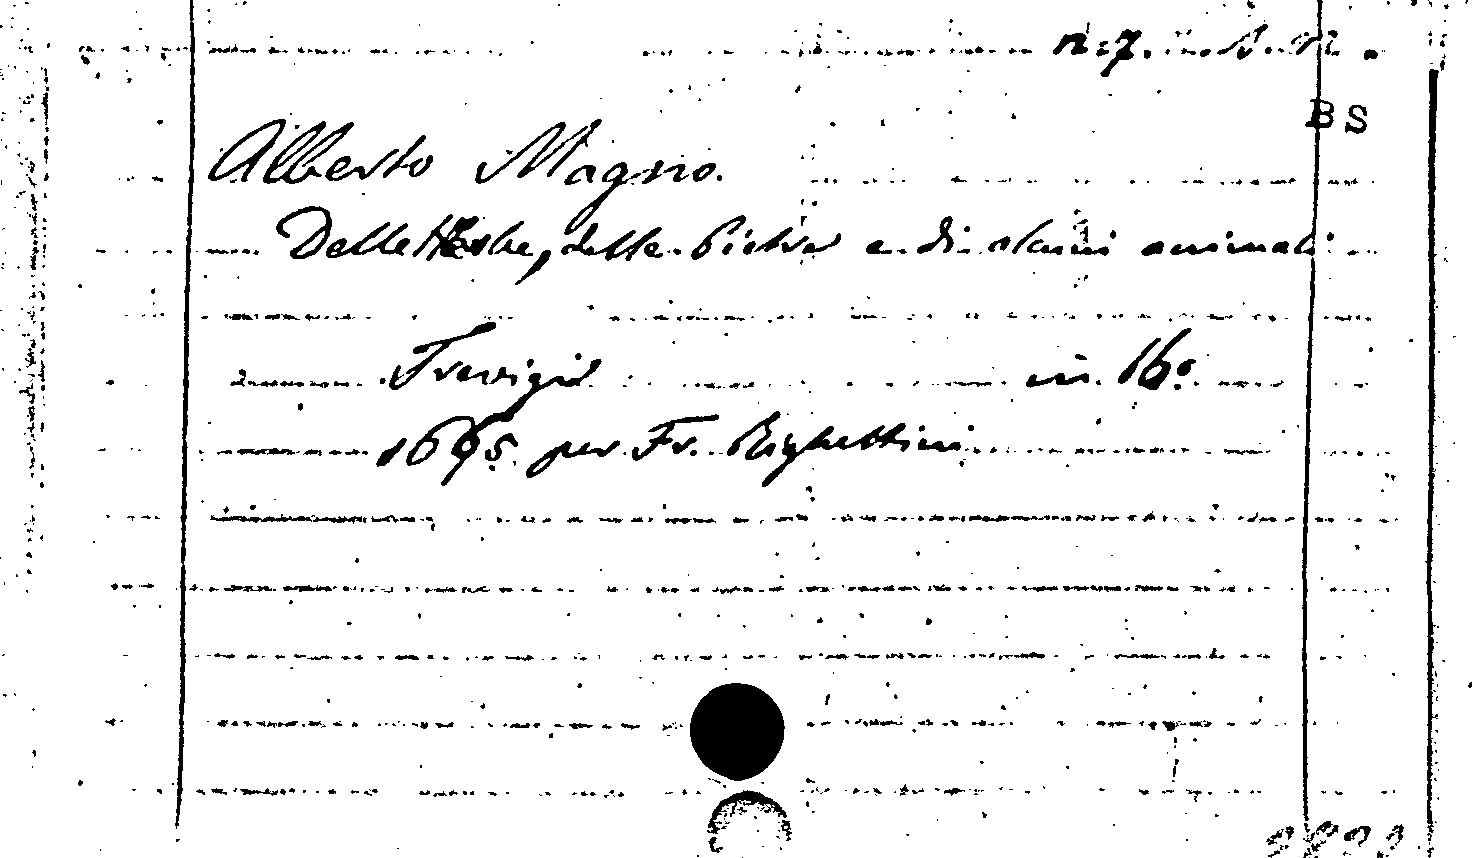 n:7.
BS
Alberto Magno.
Delle Herbe, delle Pietre e di alcuni animali
Trevigi in 16º.
1665. per Fr. Righettini